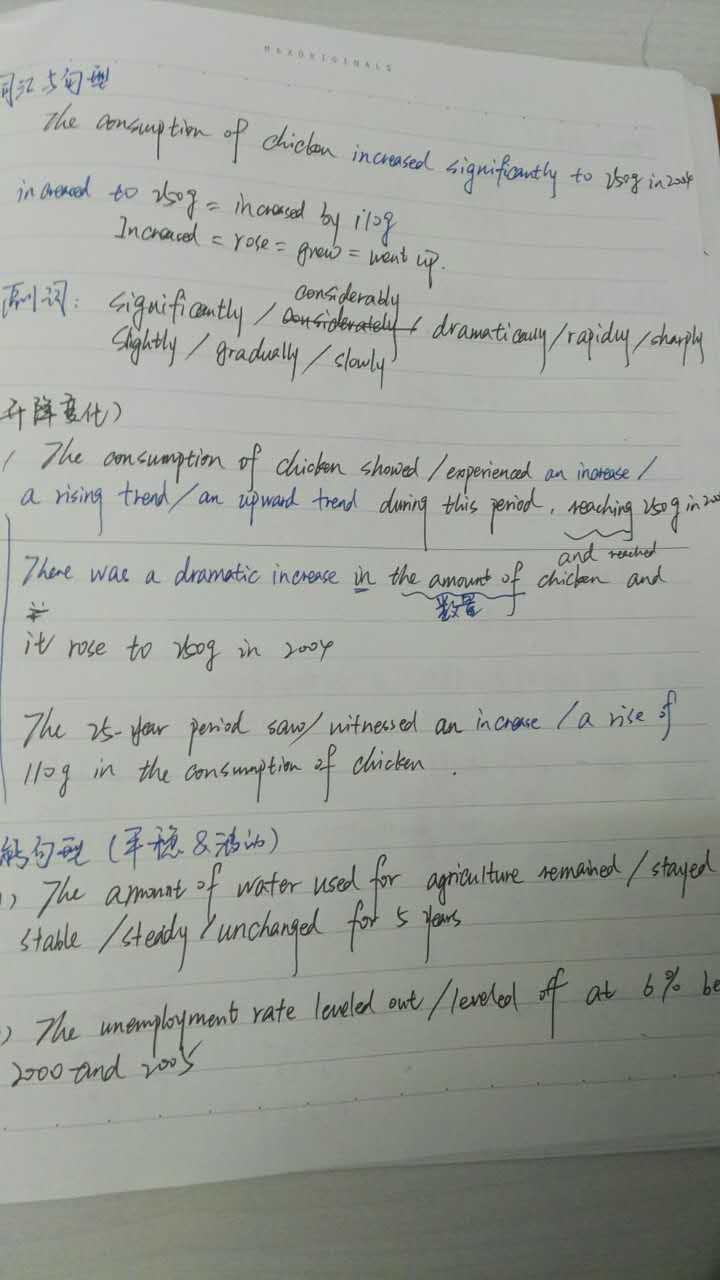 MAXORIGINALS
词汇与句型
The consumption of chicken increased significantly to 250g in 2004
increased to 250g = increased by 110g
Increased = rose = grew = went up.
副词: significantly / considerably / dramatically / rapidly / sharply
slightly / gradually / slowly
升降变化)
The consumption of chicken showed / experienced an increase /
a rising trend / an upward trend during this period, reaching 250g in 200
and reached
There was a dramatic increase in the amount of chicken and
数量
it rose to 250g in 2004
The 25-year period saw / witnessed an increase / a rise of
110g in the consumption of chicken.
句型 (平稳 & 波动)
1) The amount of water used for agriculture remained / stayed
stable / steady / unchanged for 5 years
) The unemployment rate leveled out / leveled off at 6% be
2000 and 2005